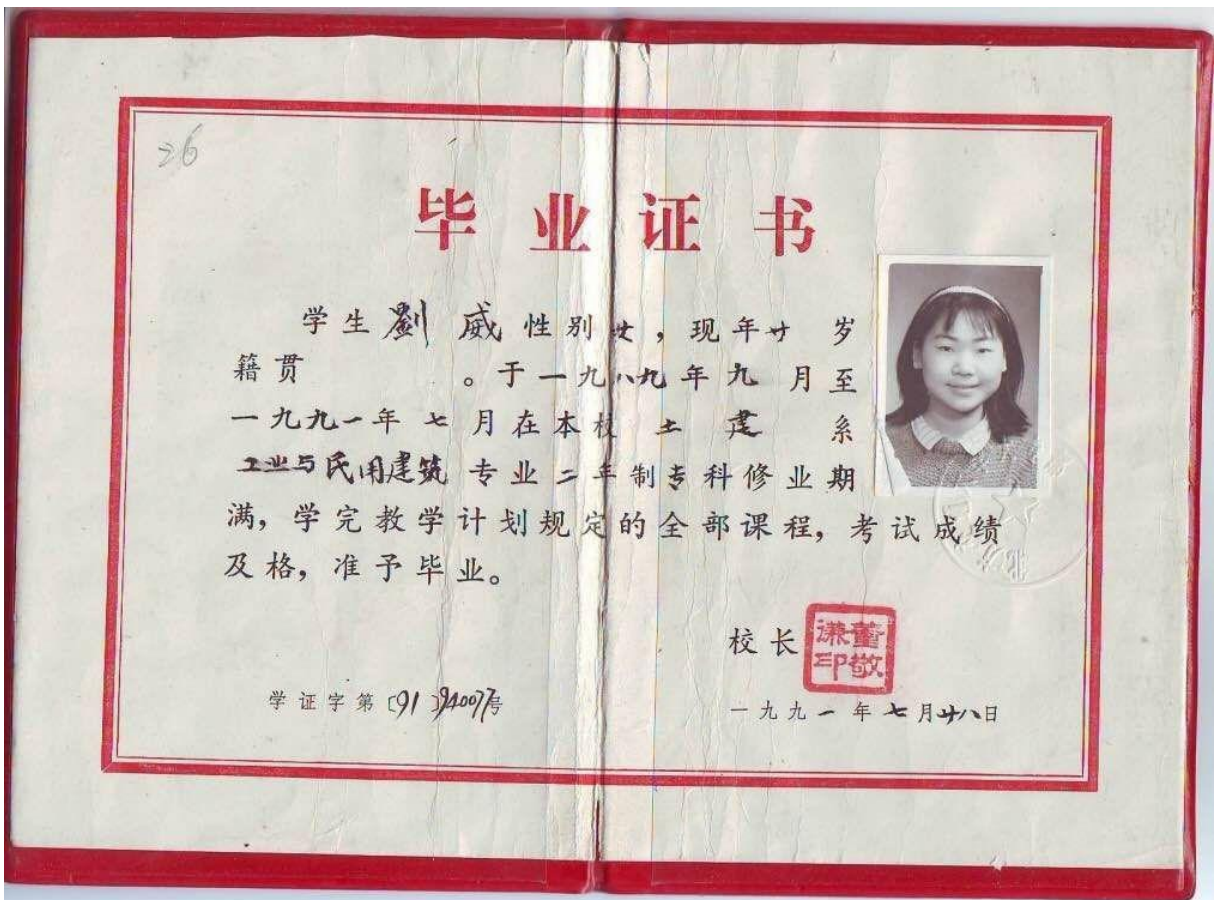 26
毕业证书
学生劉威性别女，现年廿岁
籍贯 。于一九八九年九月至
一九九一年七月在本校土建系
工业与民用建筑专业二年制专科修业期
满，学完教学计划规定的全部课程，考试成绩
及格，准予毕业。
校长
董敬谦印
学证字第〔91〕94007号
一九九一年七月廿八日